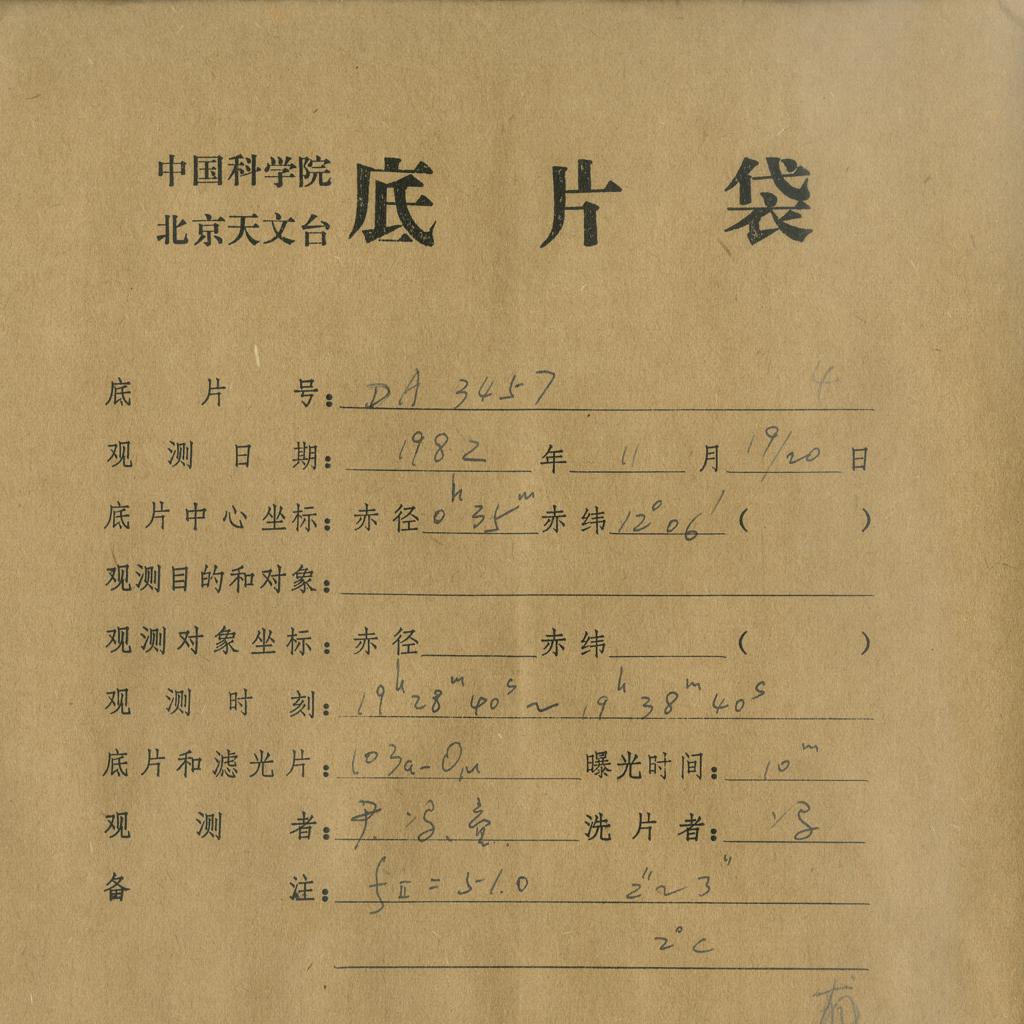 中国科学院
北京天文台
底片袋
底片号：DA 3457 4
观测日期：1982年11月19/20日
底片中心坐标：赤径0h35m赤纬12°06′（ ）
观测目的和对象：
观测对象坐标：赤径 赤纬 （ ）
观测时刻：19h28m40s～19h38m40s
底片和滤光片：103a-O 曝光时间：10m
观测者：尹、冯、童 洗片者：冯
备注：fII=51.0 2″～3″
2°C